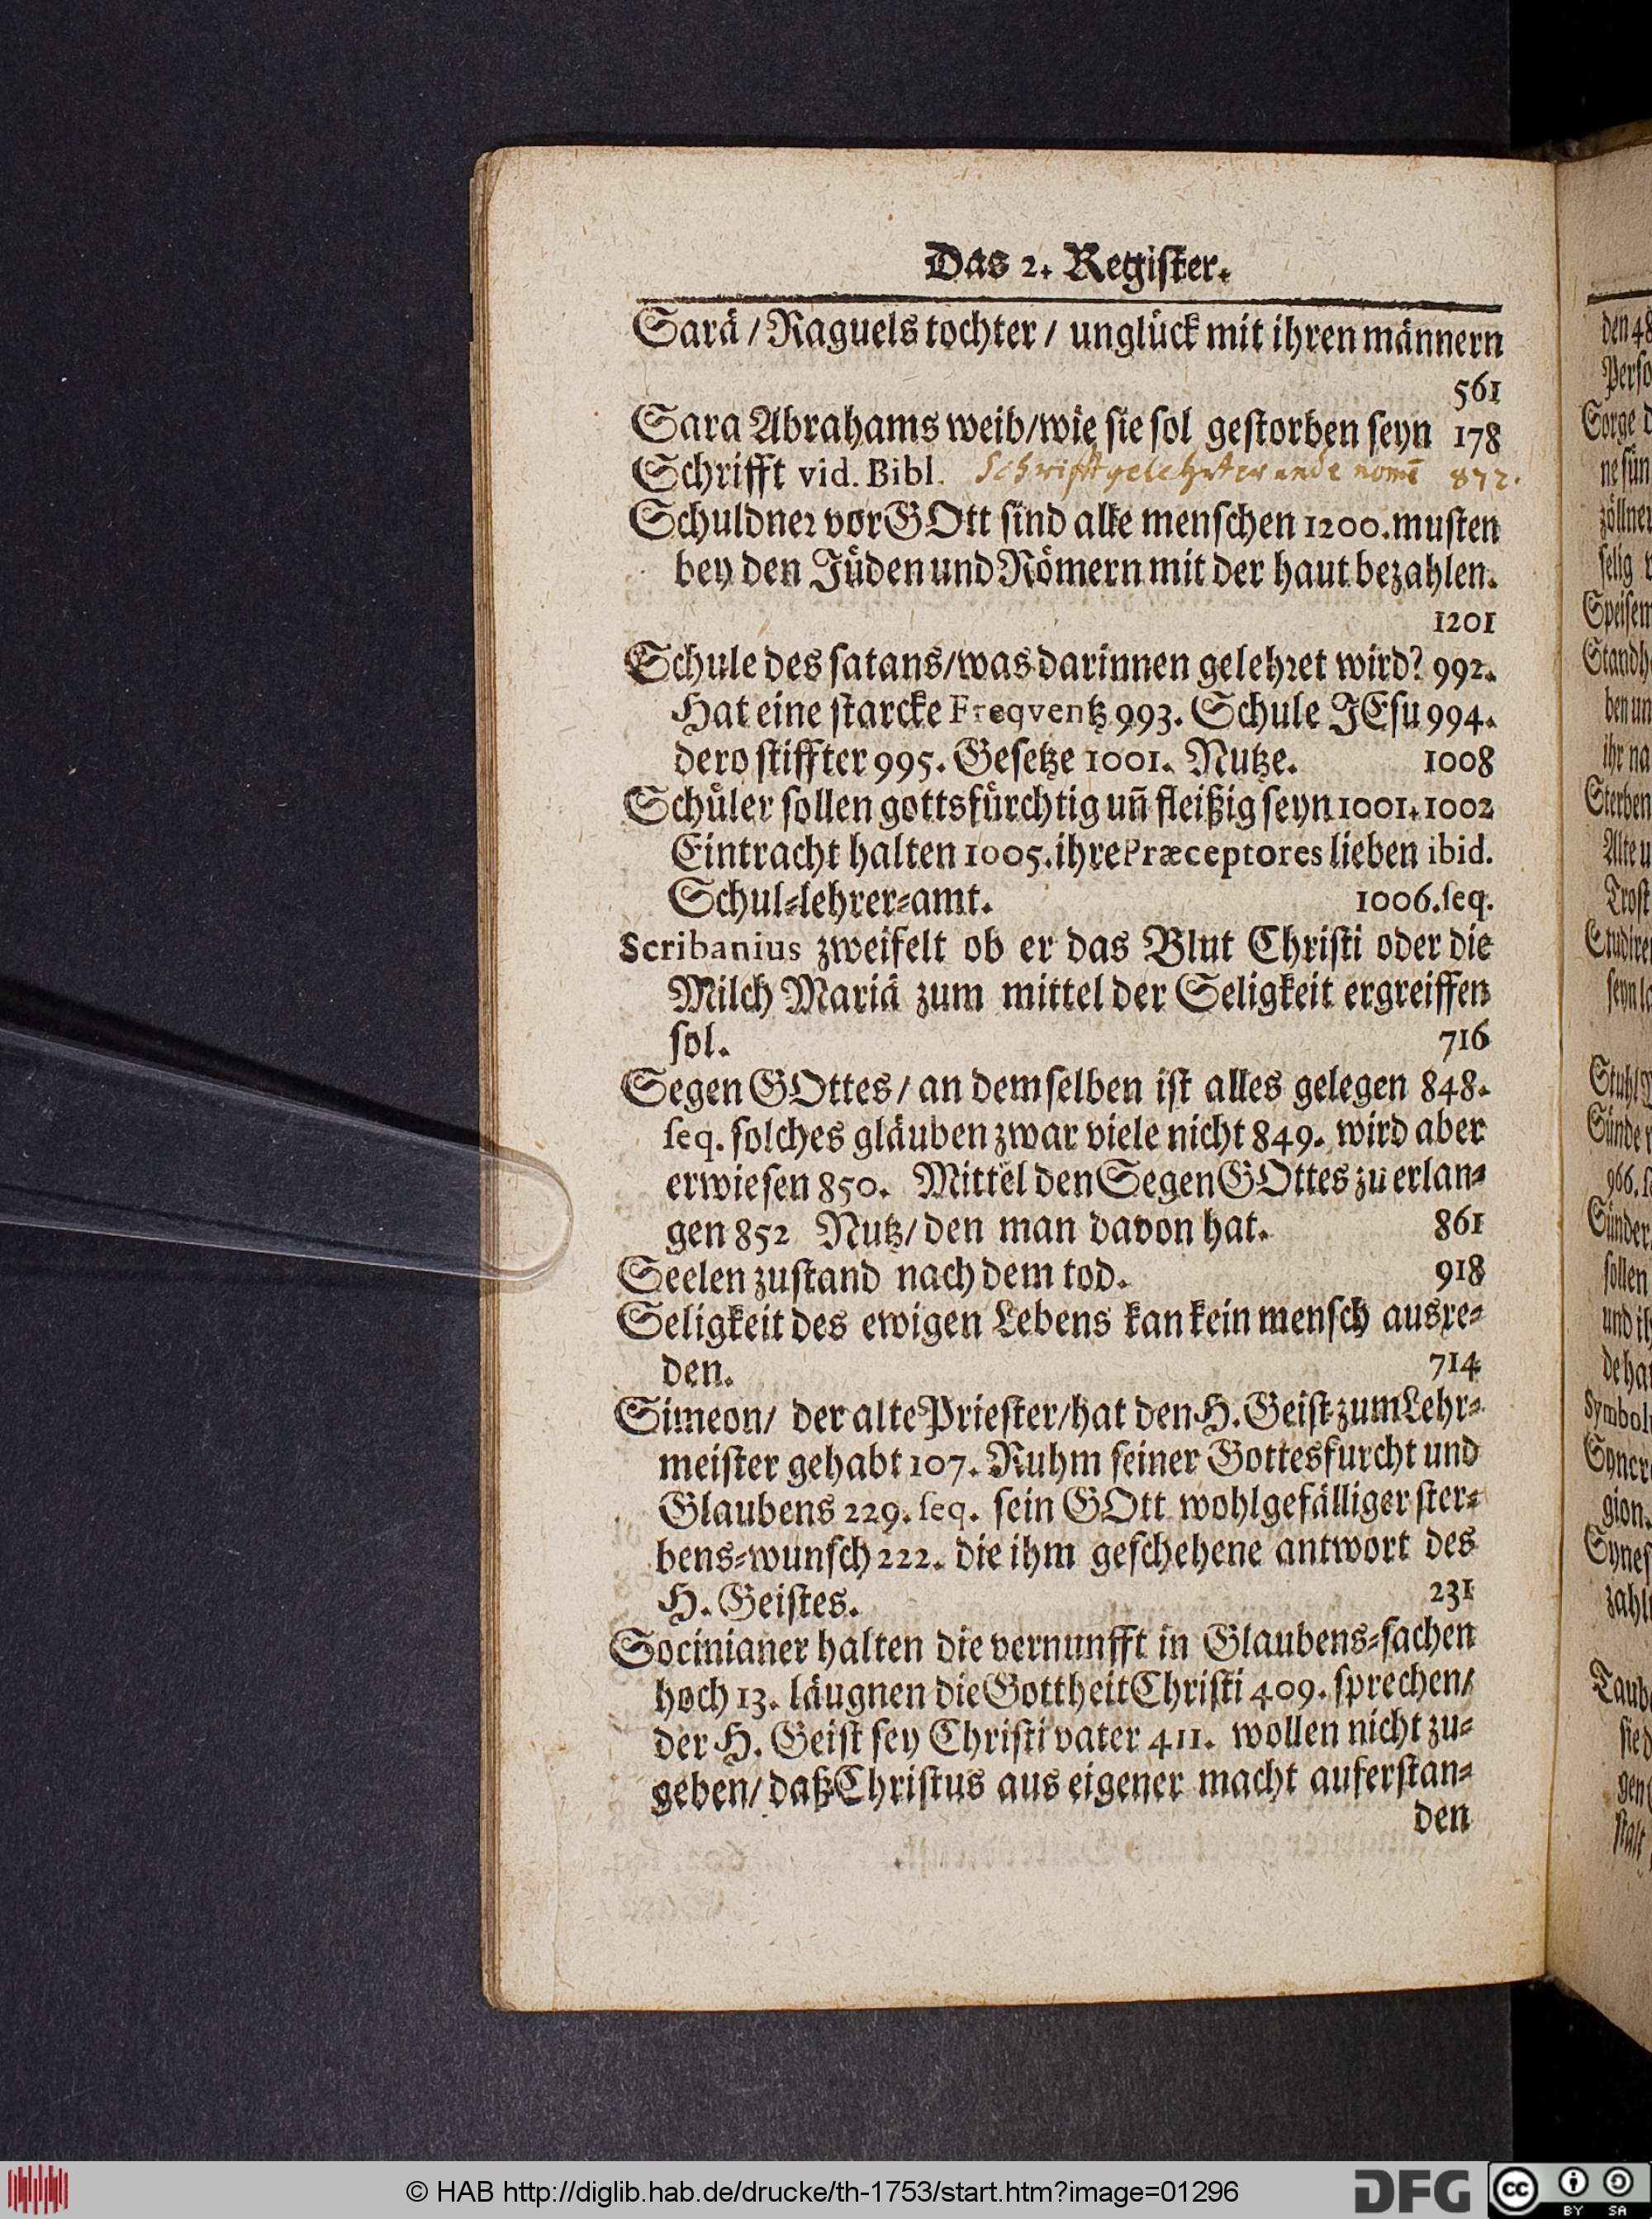 Das 2. Regiſter.
Sarä / Raguels tochter / unglück mit ihren männern
561
Sara Abrahams weib/wie ſie ſol geſtorben ſeyn 178
Schrifft vid. Bibl. Schrifftgelehrter 872.
Schuldner vor GOtt ſind alle menſchen 1200. muſten
bey den Jüden und Römern mit der haut bezahlen.
1201
Schule des ſatans/was darinnen gelehret wird? 992.
Hat eine ſtarcke Freqventz 993. Schule JEſu 994.
dero ſtiffter 995. Geſetze 1001. Nutze. 1008
Schüler ſollen gottsfürchtig uñ fleißig ſeyn 1001. 1002
Eintracht halten 1005. ihre Præceptores lieben ibid.
Schul-lehrer-amt. 1006. ſeq.
Scribanius zweifelt ob er das Blut Chriſti oder die
Milch Mariä zum mittel der Seligkeit ergreiffen
ſol. 716
Segen GOttes / an demſelben iſt alles gelegen 848.
ſeq. ſolches gläuben zwar viele nicht 849. wird aber
erwieſen 850. Mittel den Segen GOttes zu erlan-
gen 852 Nutz/ den man davon hat. 861
Seelen zuſtand nach dem tod. 918
Seligkeit des ewigen Lebens kan kein menſch ausre-
den. 714
Simeon/ der alte Prieſter/hat den H. Geiſt zum Lehr-
meiſter gehabt 107. Ruhm ſeiner Gottesfurcht und
Glaubens 229. ſeq. ſein GOtt wohlgefälliger ſter-
bens-wunſch 222. die ihm geſchehene antwort des
H. Geiſtes. 231
Socinianer halten die vernunfft in Glaubens-ſachen
hoch 13. läugnen die Gottheit Chriſti 409. ſprechen/
der H. Geiſt ſey Chriſti vater 411. wollen nicht zu-
geben/ daß Chriſtus aus eigener macht auferſtan-
den
© HAB http://diglib.hab.de/drucke/th-1753/start.htm?image=01296
DFG
CC BY SA